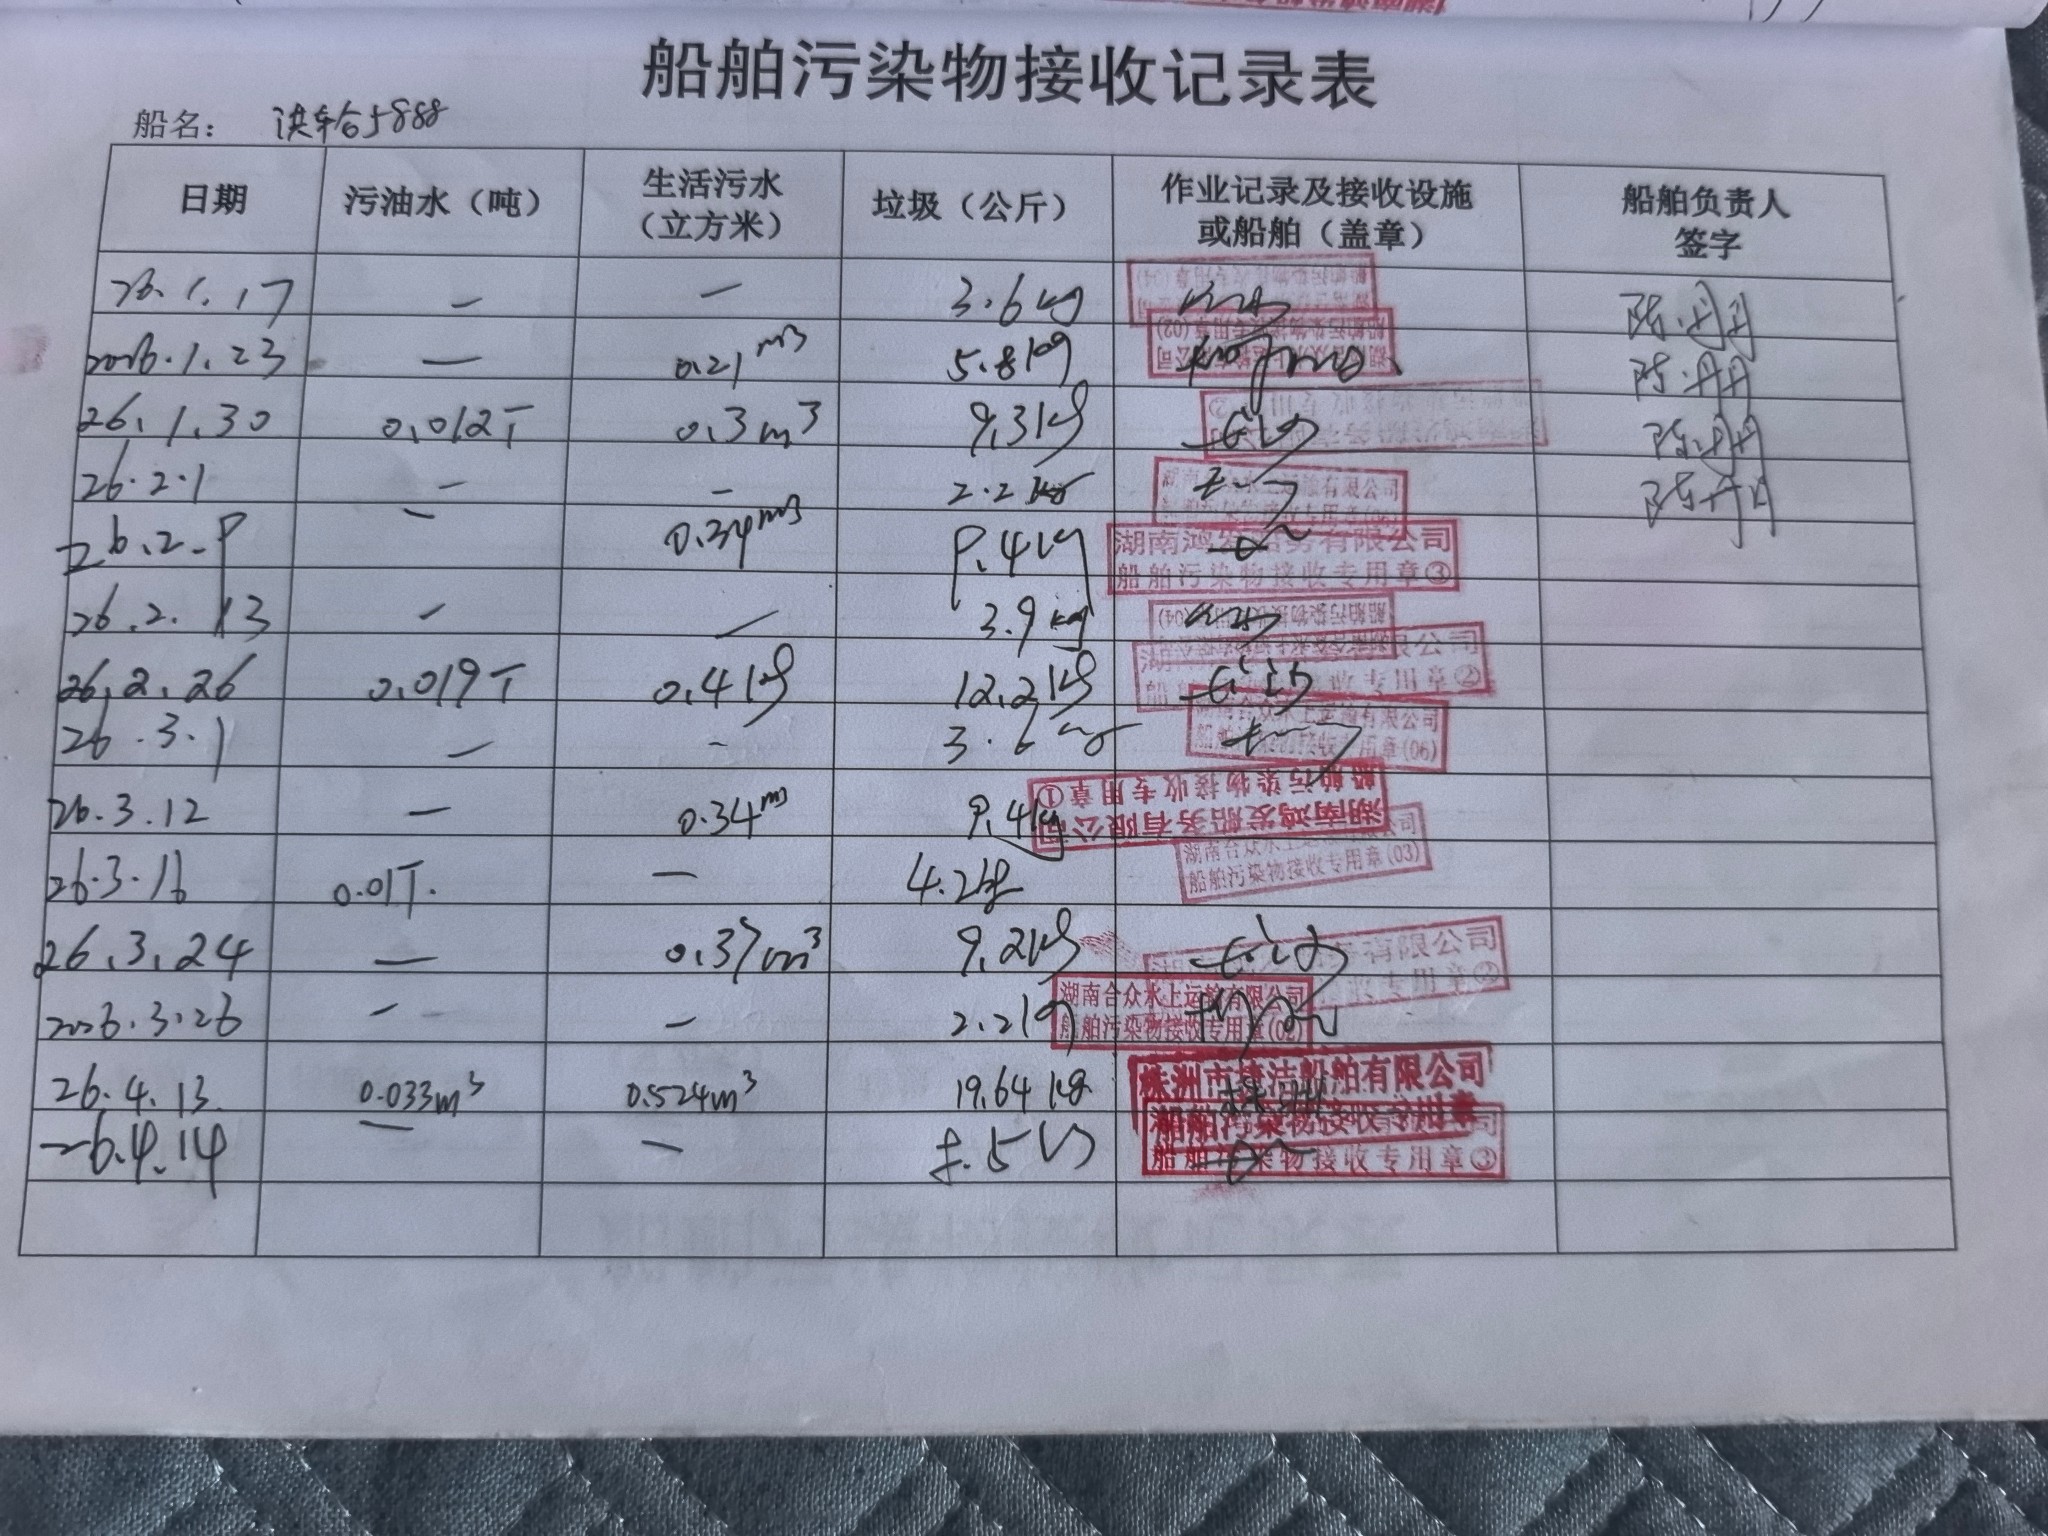 船舶污染物接收记录表
船名： 5888
日期 污油水（吨） 生活污水（立方米） 垃圾（公斤） 作业记录及接收设施或船舶（盖章） 船舶负责人签字
26.1.17 — — 3.6kg 船舶污染物接收专用章(04) 陈丹丹
2026.1.23 — 0.21m³ 5.8kg 船舶污染物接收专用章(02) 陈丹丹
26.1.30 0.012T 0.3m³ 9.3kg 陈丹丹
26.2.1 — — 2.2kg 水上运输有限公司 陈丹丹
26.2.9 — 0.34m³ 9.4kg 湖南鸿发船务有限公司 船舶污染物接收专用章③
26.2.13 — — 3.9kg 船舶污染物接收专用章(04)
26.2.26 0.019T 0.4kg 12.2kg 专用章②
26.3.1 — — 3.6kg 湖南合众水上运输有限公司 船舶污染物接收专用章(06)
26.3.12 — 0.34m³ 9.4kg 湖南鸿发船务有限公司 船舶污染物接收专用章①
26.3.16 0.01T. — 4.2kg 湖南合众水上 公司 船舶污染物接收专用章(03)
26.3.24 — 0.37m³ 9.2kg 有限公司 专用章②
2026.3.26 — — 2.2kg 湖南合众水上运输有限公司 船舶污染物接收专用章(02)
26.4.13. 0.033m³ 0.524m³ 19.64kg 株洲市捷洁船舶有限公司 船舶污染物接收专用章
26.4.14 — — .5kg 船舶污染物接收专用章③